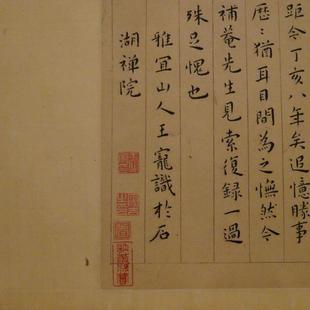 距今丁亥八年矣追憶勝事
歷〻猶耳目間為之憮然今
補菴先生見索復録一過
殊足愧也
雅宜山人王寵識於石
湖禪院